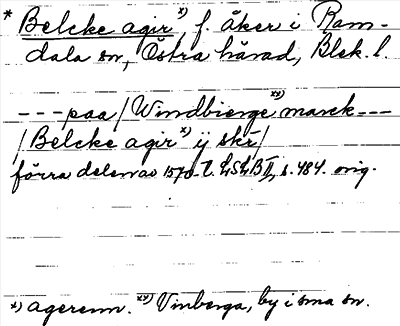 * Belcke agir x), f. åker i Ram-
dala sn, Östra härad, Blek. l.
---paa / Windbierge xx) marck---
/ Belcke agir x) ij skr /
förra delen av 1570-t. LSLB II, s. 484. orig.
x) agerenn. xx) Vinberga, by i sma sn.